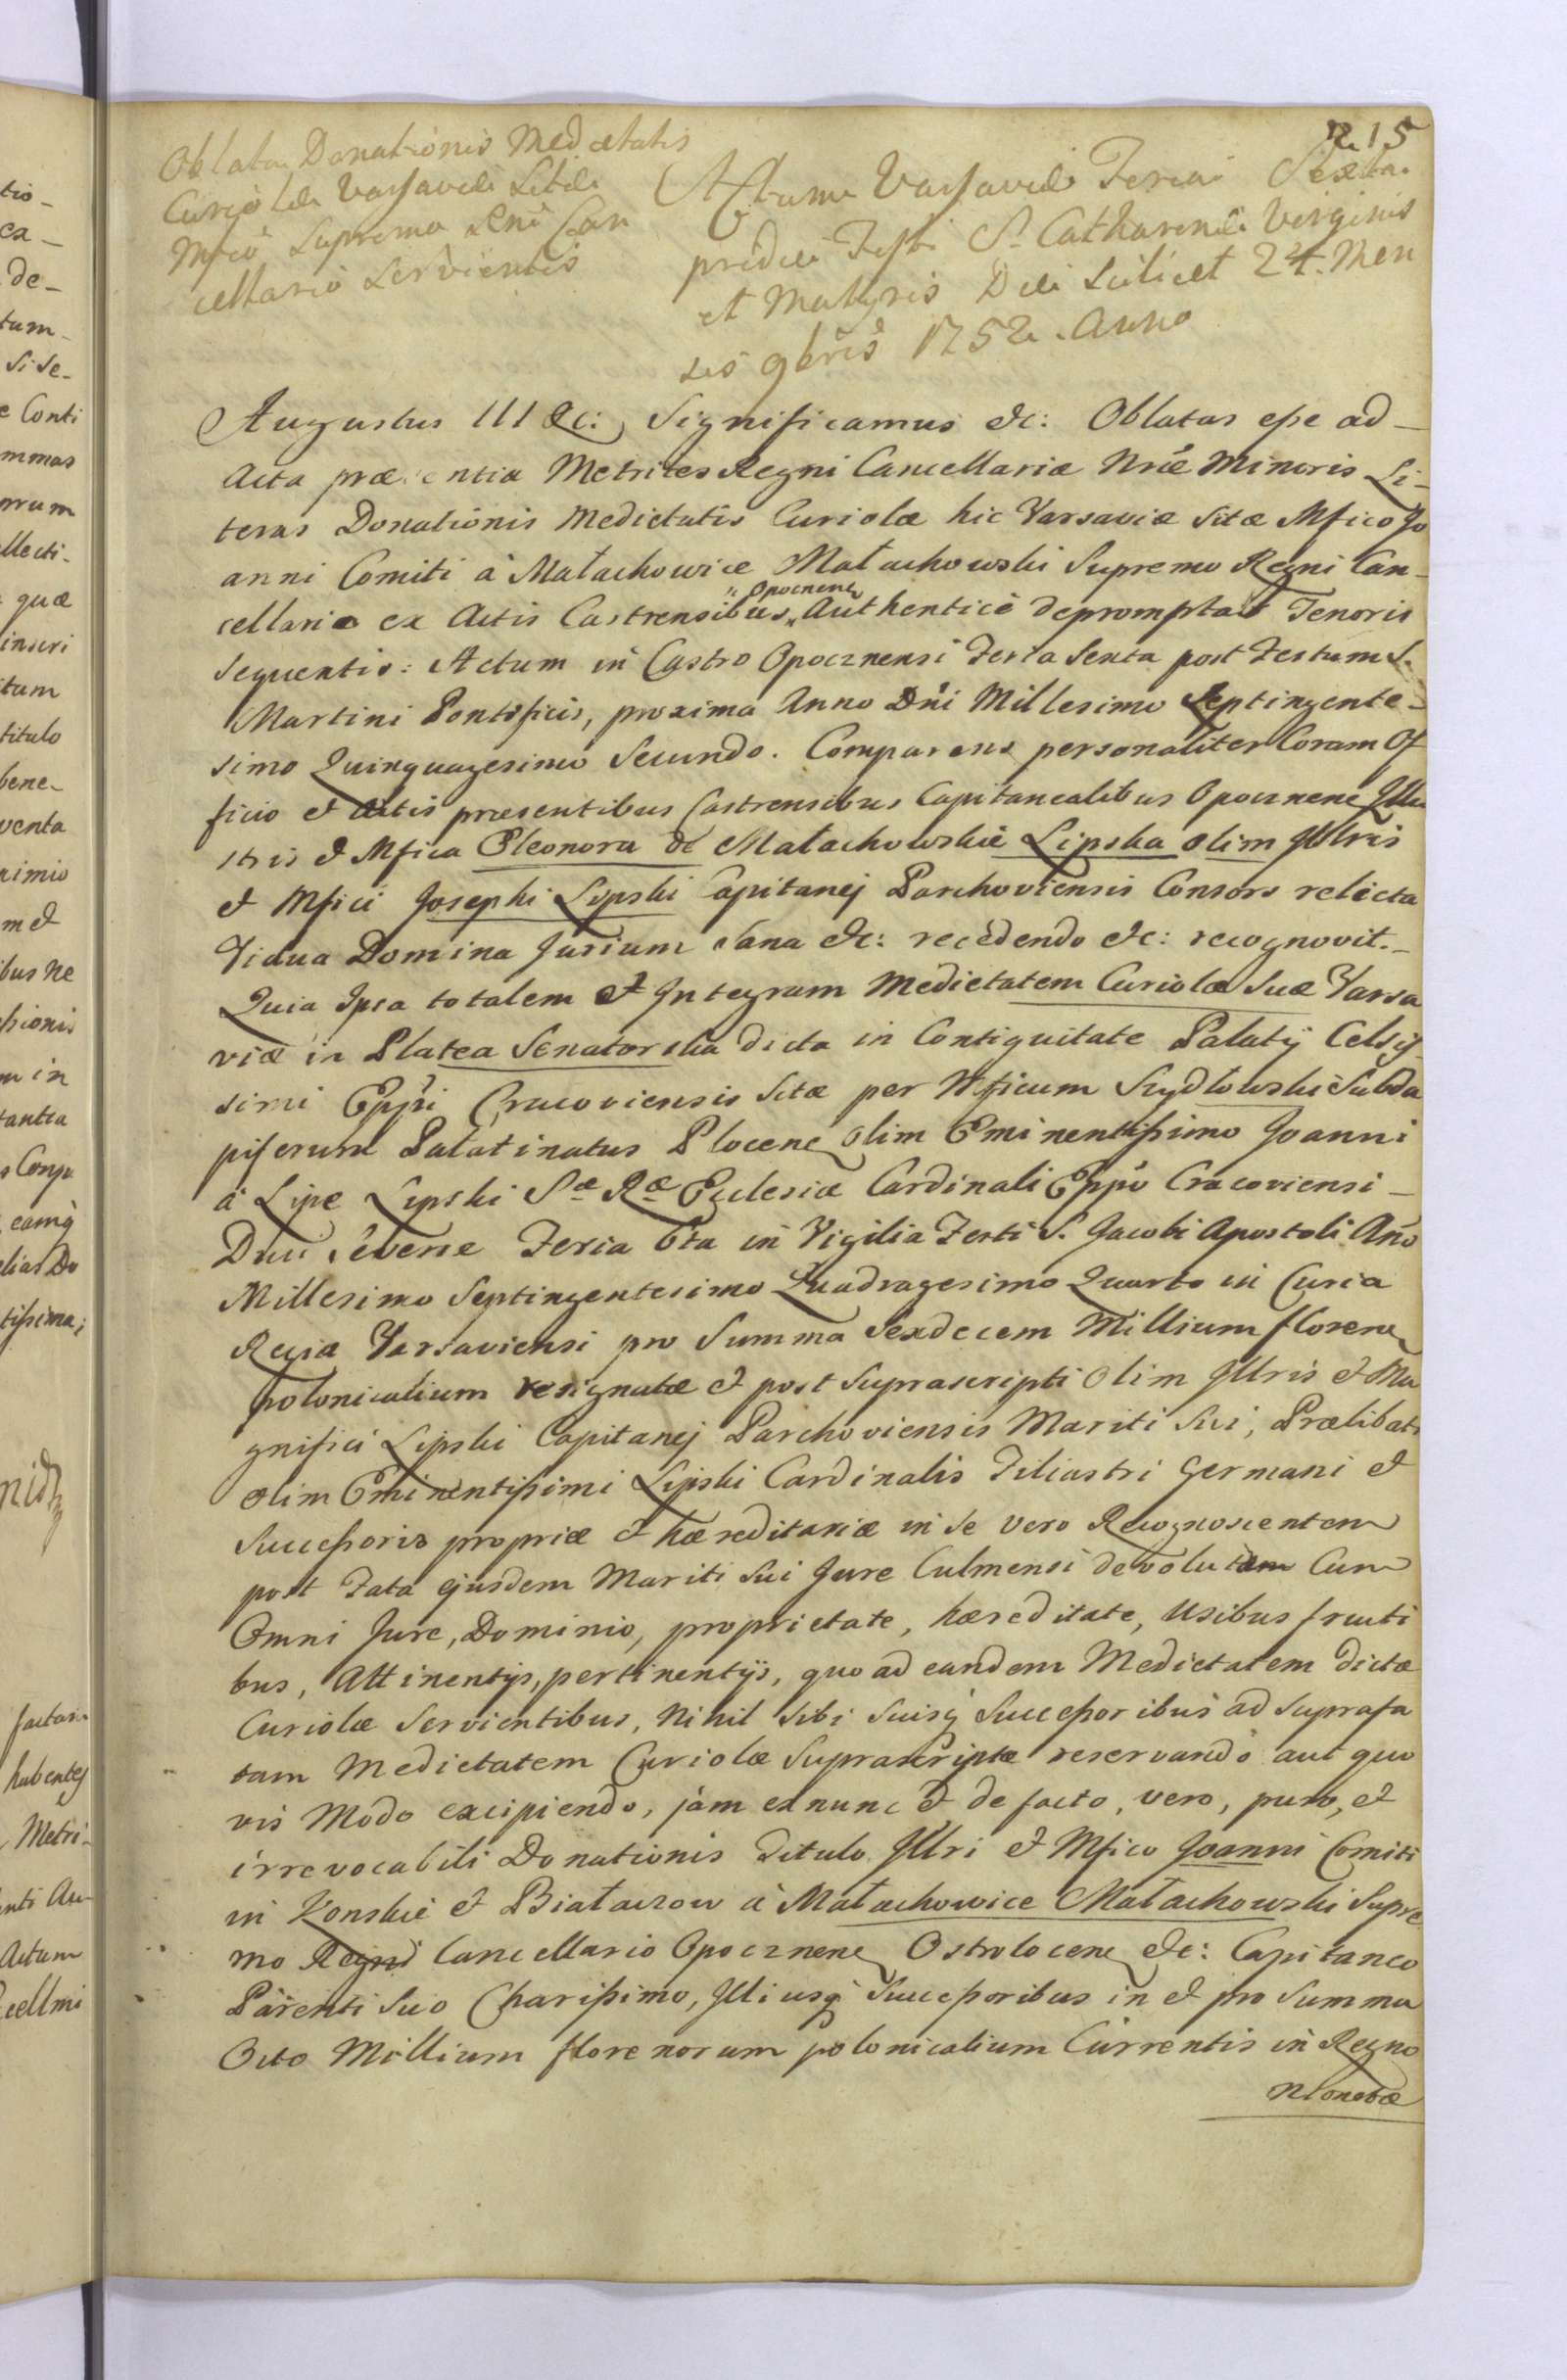 215
Oblata Donationis Medietatis
Curiolæ Varsaviæ Sitæ
Mfico Supremo Regni Can
cellario Servientis
Actum Varsaviæ Feria Sexta
pridie Festi S. Catharinæ Virginis
et Martyris Die Scilicet 24. Men
sis 9bris 1752. Anno
Augustus III &c: Significamus &c: Oblatas esse ad
Acta præsentia Metrices Regni Cancellariæ Nræ Minoris Li-
teras Donationis Medietatis Curiolæ hic Varsaviæ Sitæ Mfico Jo
anni Comiti à Małachowice Małachowski Supremo Regni Can-
cellario ex Actis Castrensibus Opocznens Authenticè depromptas Tenoris
Sequentis: Actum in Castro Opocznensi Feria Sexta post Festum S.
Martini Pontificis, proxima Anno Dni Millesimo Septingente-
simo Quinquagesimo Secundo. Comparens personaliter Coram Of
ficio et Actis præsentibus Castrensibus Capitanealibus Opocznens Illu
stris & Mfica Eleonora de Małachowskie Lipska olim Illris
& Mfici Josephi Lipski Capitanej Parchoviensis Consors relicta
Vidua Domina Jurium Sana &c: recedendo &c: recognovit.
Quia Ipsa totalem & Integram Medietatem Curiolæ Suæ Varsa
viæ in Platea Senatorska dicta in Contiguitate Palatij Celsis
simi Eppi Cracoviensis Sitæ per Mficum Szydłowski Subda
piferum Palatinatus Plocens olim Eminentissimo Joanni
à Lipe Lipski Sæ Ræ Ecclesiæ Cardinali Eppo Cracoviensi
Duci Severiæ Feria 6ta in Vigilia Festi S. Jacobi Apostoli Ano
Millesimo Septingentesimo Quadragesimo Quarto in Curia
Regia Varsaviensi pro Summa Sexdecem Millium floren
polonicalium resignatæ & post Suprascripti Olim Illris & Ma
gnifici Lipski Capitanej Parchoviensis Mariti Sui, Prælibati
olim Eminentissimi Lipski Cardinalis Filiastri Germani &
Successoris propriæ & hæreditariæ in Se vero Recognoscentem
post Fata ejusdem Mariti Sui Jure Culmensi devolutam Cum
Omni Jure, Dominio, proprietate, hæreditate, Usibus fructi
bus, Attinentijs, pertinentijs, quo ad eandem Medietatem dictæ
Curiolæ Servientibus, Nihil Sibi Suisq Successoribus ad Suprafa
tam Medietatem Curiolæ Suprascriptæ reservando aut quo
vis Modo excipiendo, jam ex nunc & de facto, vero, puro, et
irrevocabili Donationis Titulo Illri & Mfico Joanni Comiti
in Konskie & Białaczow à Małachowice Małachowski Supre
mo Regni Cancellario Opocznens Ostrolocens &c: Capitaneo
Parenti Suo Charissimo, Illiusq Successoribus in & pro Summa
Octo Millium florenorum polonicalium Currentis in Regno
Monetæ